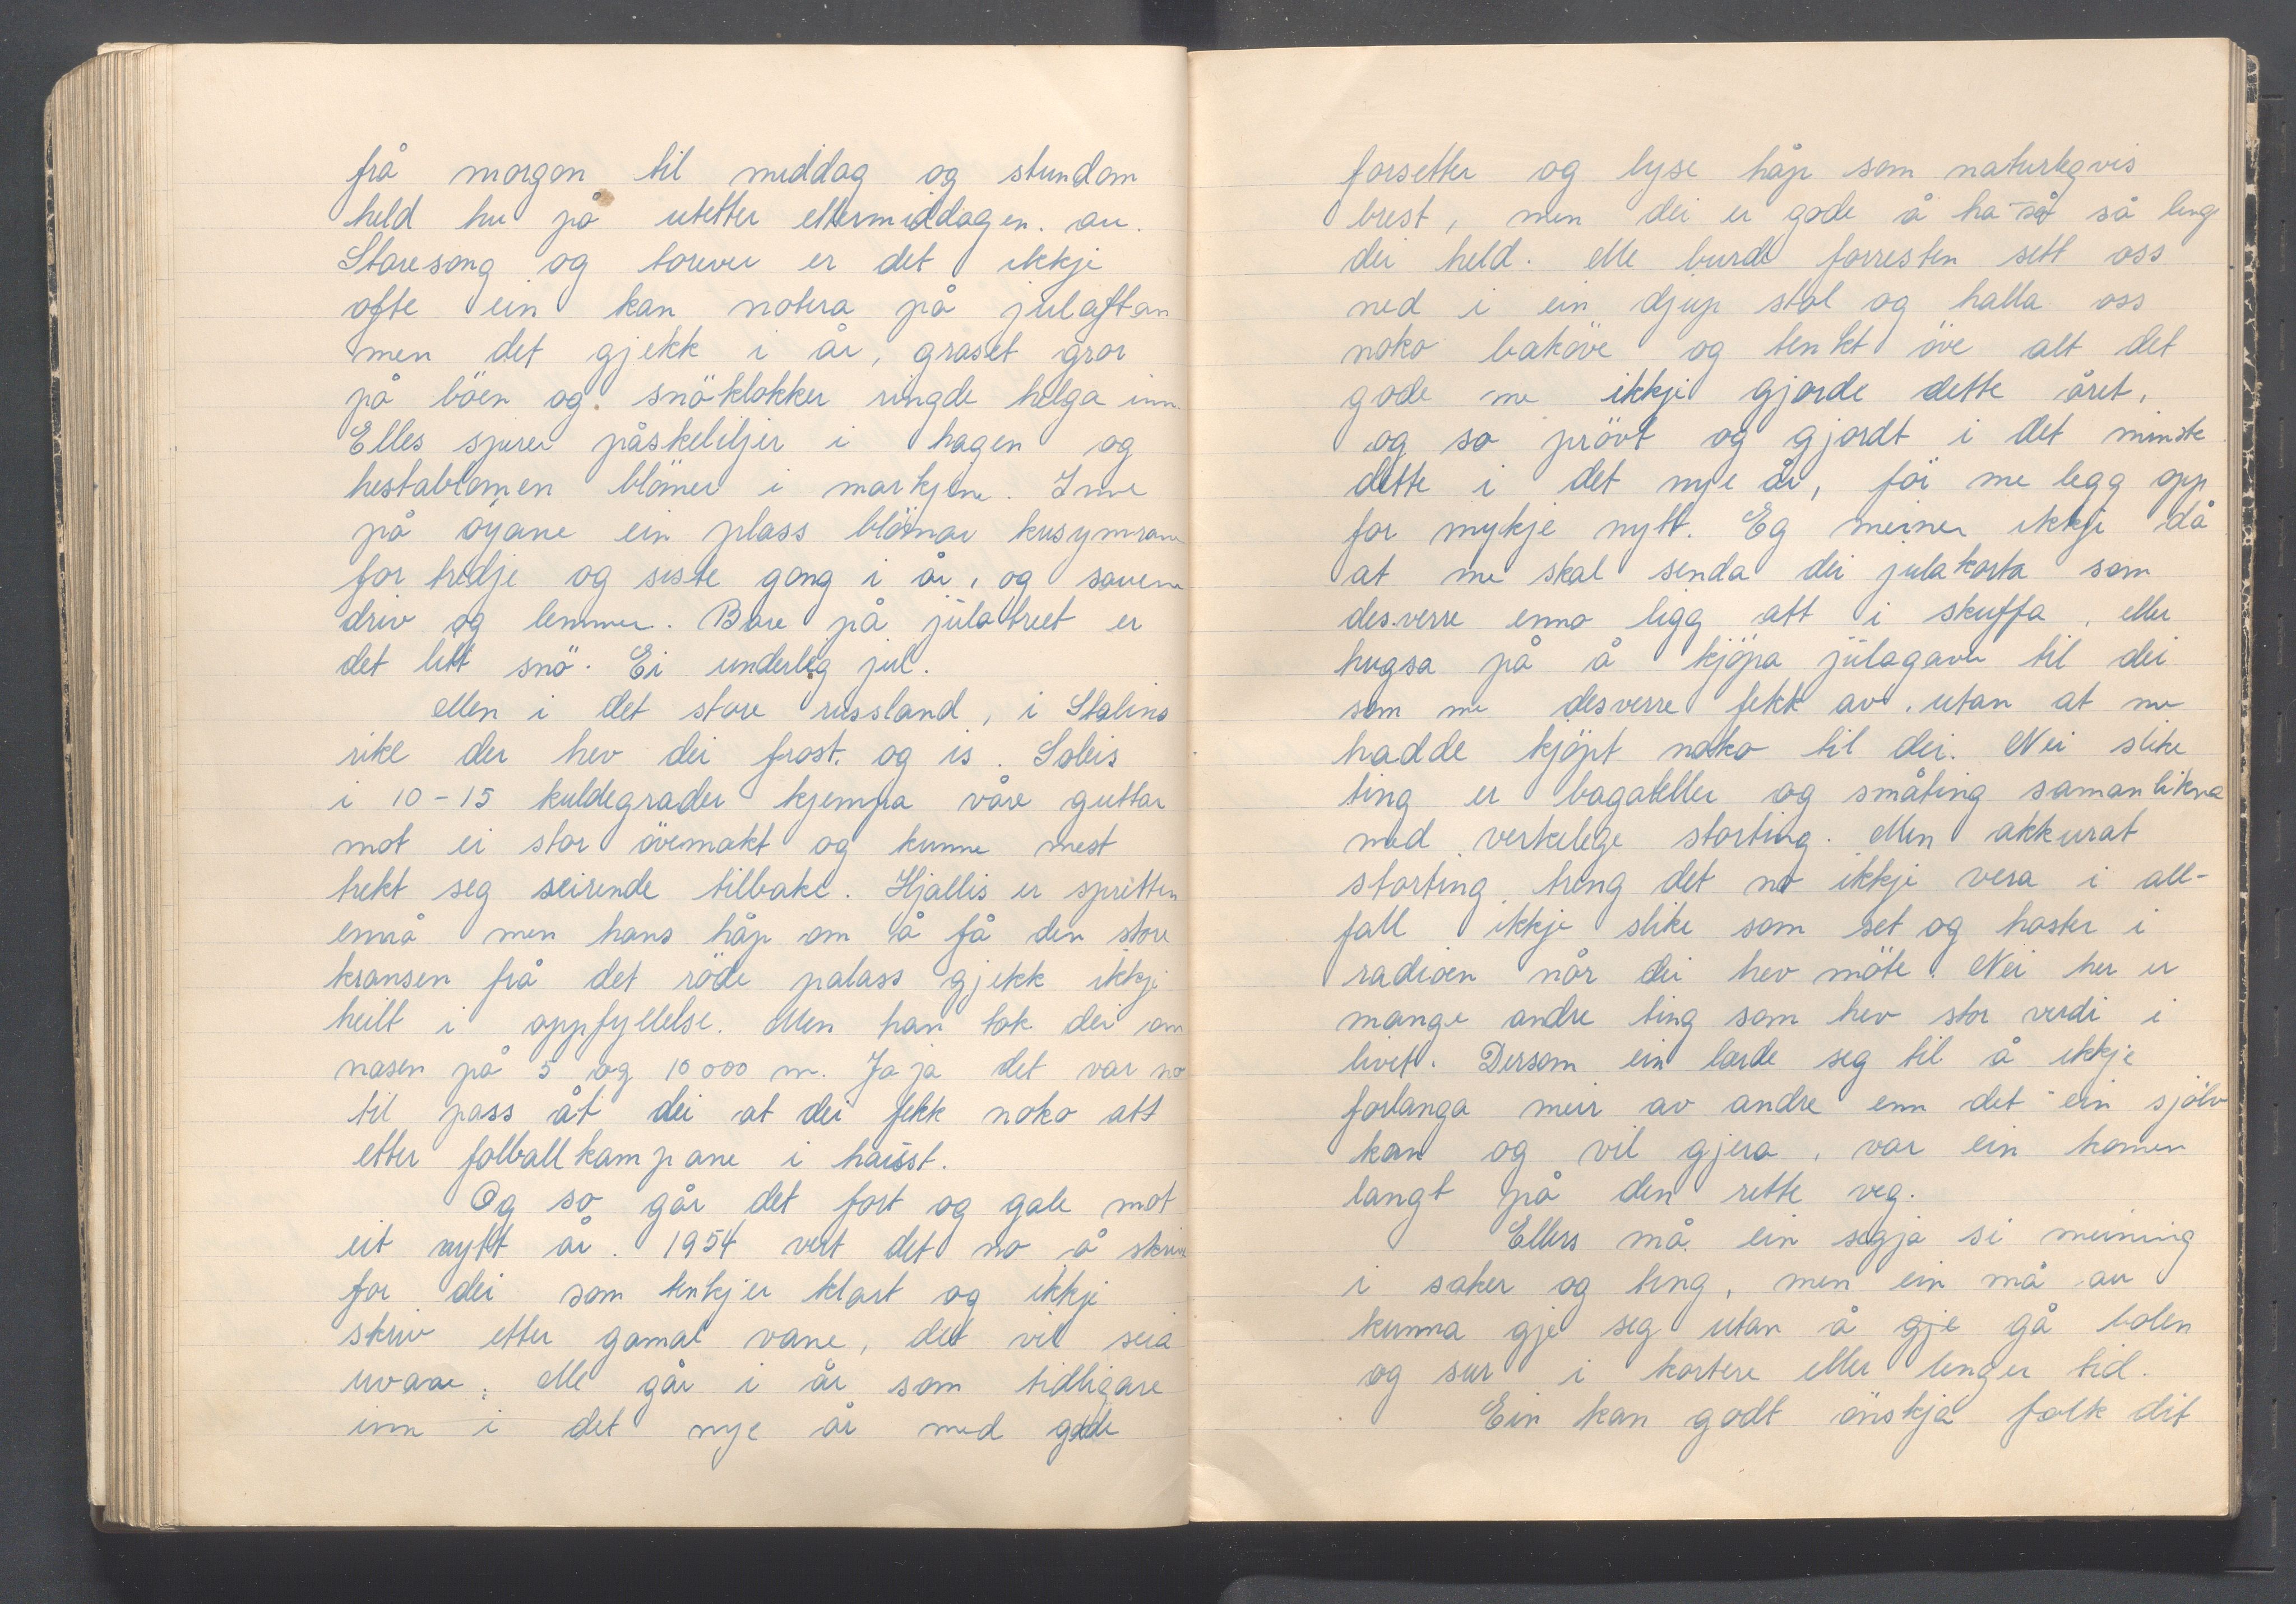 frå morgon til middag og stundom
held hu på utetter ettermiddagen. au.
Staresong og torever er det ikkje
ofte ein kan notera på julaftan
men det gjekk i år, graset gror
på böen og snöklokker ringde helga inn.
Elles sprer påskeliljer i hagen og
hestablomen blömer i markjene. Inne
på öyane ein plass blömar kusymrane
for tredje og siste gong i år, og sauene
driv og lemmer. Bare på julatreet er
det litt snö. Ei underleg jul.
Men i det store russland, i Stalins
rike der hev dei frost og is. Soleis
i 10-15 kuldegrader kjempa våre guttar
mot ei stor övemakt og kunne mest
trekt seg seirende tilbake. Hjallis er spretten
ennå men hans håp om å få den store
kransen frå det röde palass gjekk ikkje
heilt i oppfyllelse. Men han tok dei om
nasen på 5 og 10 000 m. Ja ja det var no
til pass åt dei at dei fekk noko att
etter folballkampane i haust.
Og so går det fort og gale mot
eit nytt år. 1954 vert det no å skrive
for dei som tenkjer klart og ikkje
skriv etter gamal vane, det vil seia
uvane. Me går i år som tidligare
inn i det nye år med gode
forsetter og lyse håp som naturlegvis
brest, men dei er gode å ha så så lenge
dei held. Me burde forresten sett oss
ned i ein djup stol og halla oss
noko baköve og tenkt öve alt det
gode me ikkje gjorde dette året,
og so prövt og gjordt i det minste
dette i det nye år, för me legg opp
for mykje nytt. Eg meiner ikkje då
at me skal senda dei julakorta som
desverre enno ligg att i skuffa, eller
hugsa på å kjöpa julagaver til dei
som me desverre fekk av, utan at me
hadde kjöpt noko til dei. Nei slike
ting er bagateller og småting samanlikna
med verkelege storting. Men akkurat
storting treng det no ikkje vera i all-
fall ikkje slike som set og hoster i
radioen når dei hev möte. Nei her er
mange andre ting som hev stor verdi i
livet. Dersom ein lærde seg til å ikkje
forlanga meir av andre enn det ein sjölv
kan og vil gjera, var ein komen
langt på den rette veg.
Ellers må ein segja si meining
i saker og ting, men ein må au
kunna gje seg utan å gje gå bolen
og sur i kortere eller lenger tid.
Ein kan godt önskja folk dit